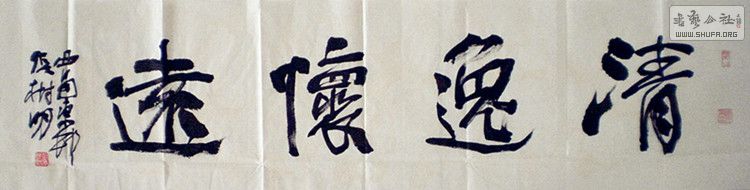 清逸懷遠
樹明
書藝公社
WWW.SHUFA.ORG